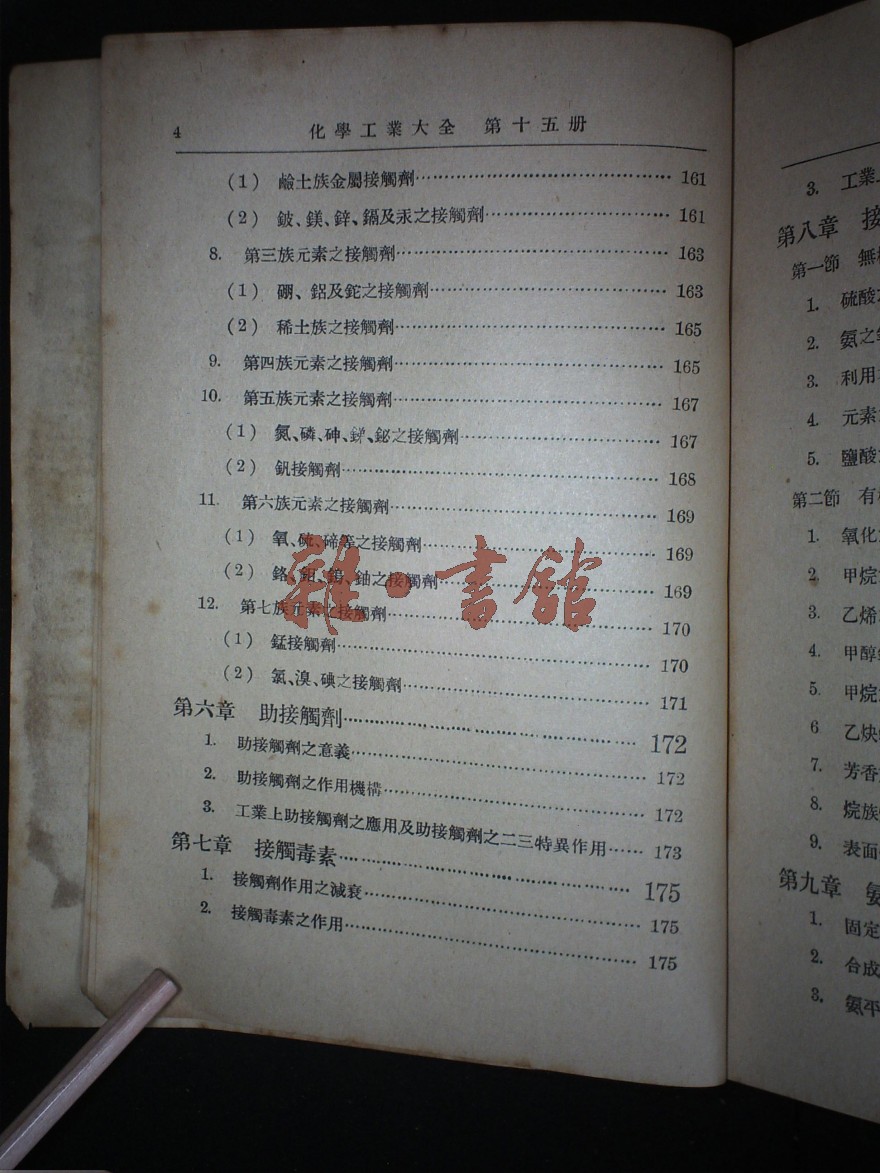 4 化學工業大全 第十五册
(1) 鹼土族金屬接觸劑 161
(2) 鈹、鎂、鋅、鎘及汞之接觸劑 161
8. 第三族元素之接觸劑 163
(1) 硼、鋁及鉈之接觸劑 163
(2) 稀土族之接觸劑 165
9. 第四族元素之接觸劑 165
10. 第五族元素之接觸劑 167
(1) 氮、磷、砷、銻、鉍之接觸劑 167
(2) 釩接觸劑 168
11. 第六族元素之接觸劑 169
(1) 氧、硫、碲等之接觸劑 169
(2) 鉻、鉬、鎢、鈾之接觸劑 169
12. 第七族元素之接觸劑 170
(1) 錳接觸劑 170
(2) 氯、溴、碘之接觸劑 171
第六章 助接觸劑 172
1. 助接觸劑之意義 172
2. 助接觸劑之作用機構 172
3. 工業上助接觸劑之應用及助接觸劑之二三特異作用 173
第七章 接觸毒素 175
1. 接觸劑作用之減衰 175
2. 接觸毒素之作用 175
雜·書館
3. 工業
第八章 接
第一節 無
1. 硫酸
2. 氨之
3. 利用
4. 元素
5. 鹽酸
第二節 有
1. 氧化
2. 甲烷
3. 乙烯
4. 甲醇
5. 甲烷
6 乙炔
7. 芳香
8. 烷族
9. 表面
第九章 氨
1. 固定
2. 合成
3. 氨平